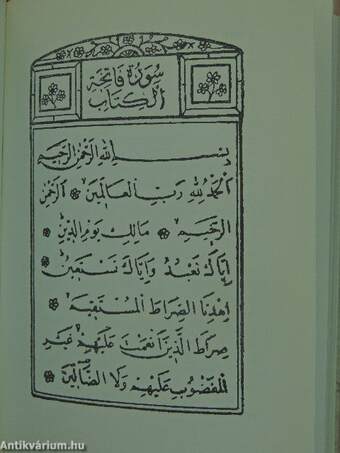 سورة فاتحة
الكتاب
بِسْمِ اللهِ الرَّحْمٰنِ الرَّحِيمِ
اَلْحَمْدُ لِلّٰهِ رَبِّ الْعَالَمِينَ ۞ اَلرَّحْمٰنِ
الرَّحِيمِ ۞ مَالِكِ يَوْمِ الدِّينِ ۞
اِيَّاكَ نَعْبُدُ وَاِيَّاكَ نَسْتَعِينُ ۞
اِهْدِنَا الصِّرَاطَ الْمُسْتَقِيمَ ۞
صِرَاطَ الَّذِينَ اَنْعَمْتَ عَلَيْهِمْ غَيْرِ
الْمَغْضُوبِ عَلَيْهِمْ وَلَا الضَّالِّينَ ۞
Antikvárium.hu